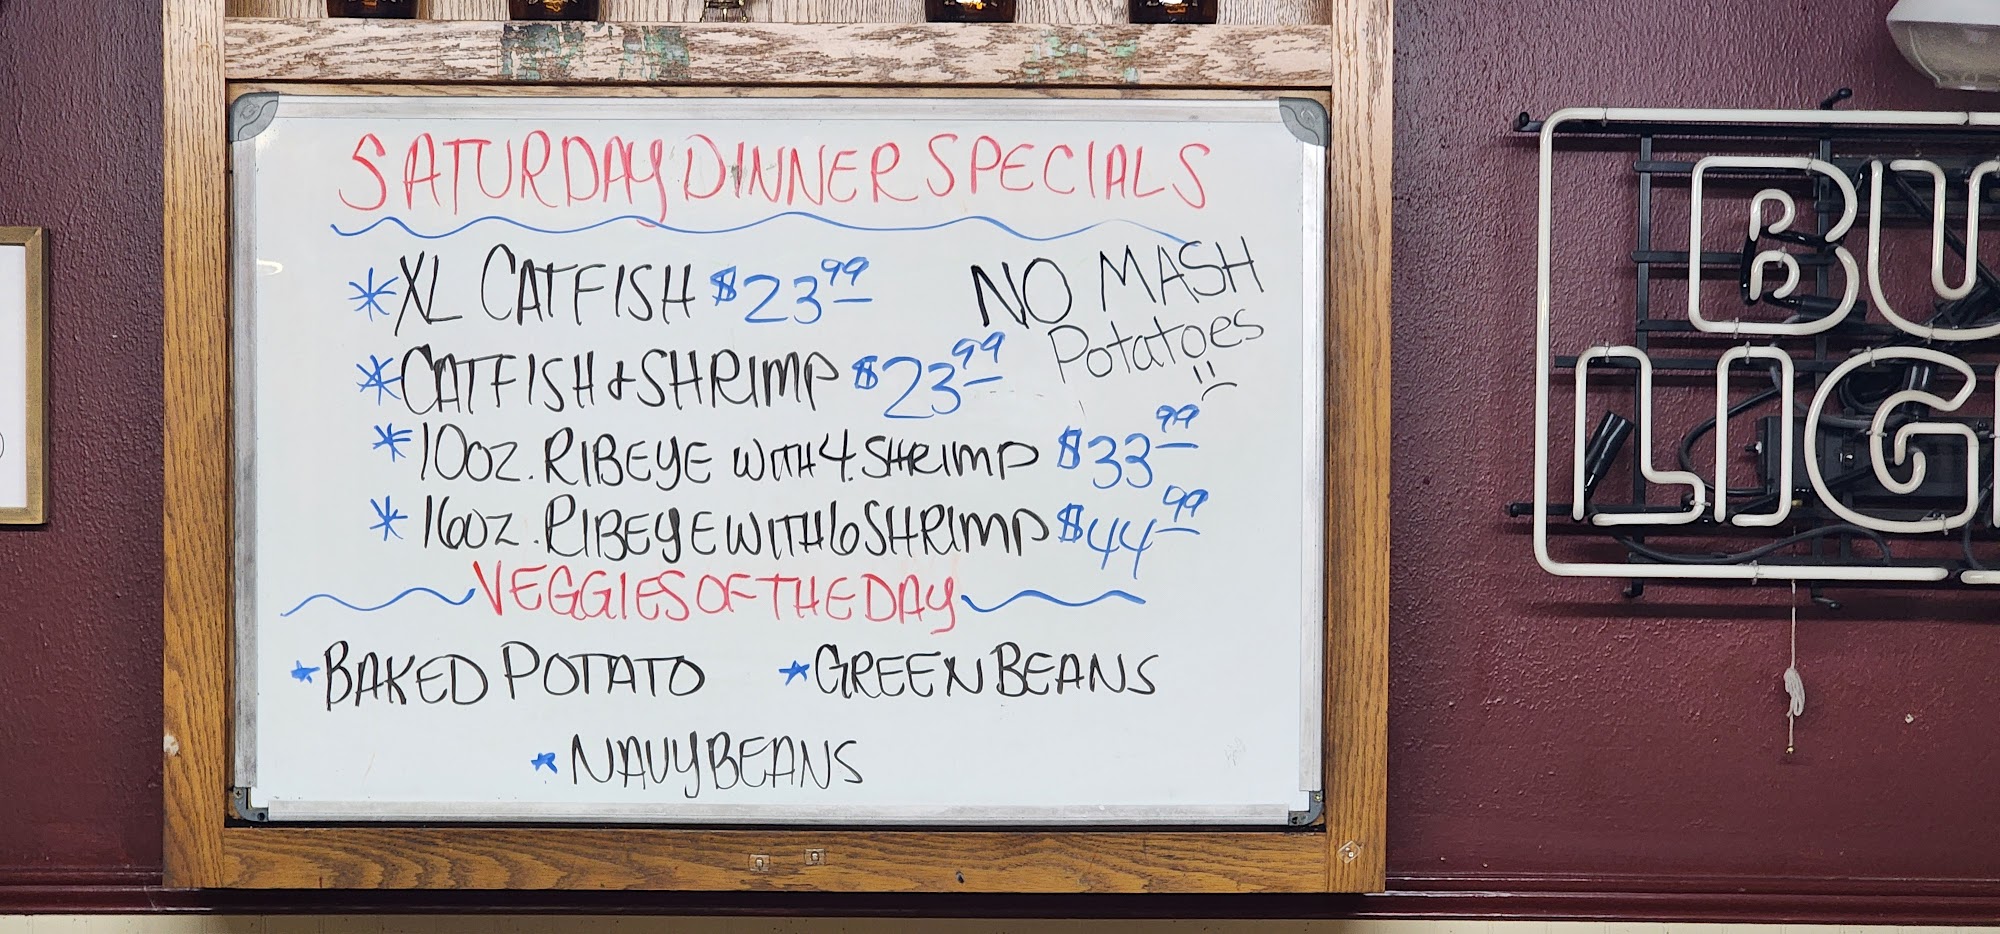 SATURDAY DINNER SPECIALS
*XL CATFISH $23.99
NO MASH
Potatoes
*CATFISH & SHRIMP $23.99
*10oz. RIBEYE WITH 4. SHRIMP $33.99
*16oz. RIBEYE WITH 6 SHRIMP $44.99
VEGGIES OF THE DAY
*BAKED POTATO *GREEN BEANS
*NAVY BEANS
BU
LIG